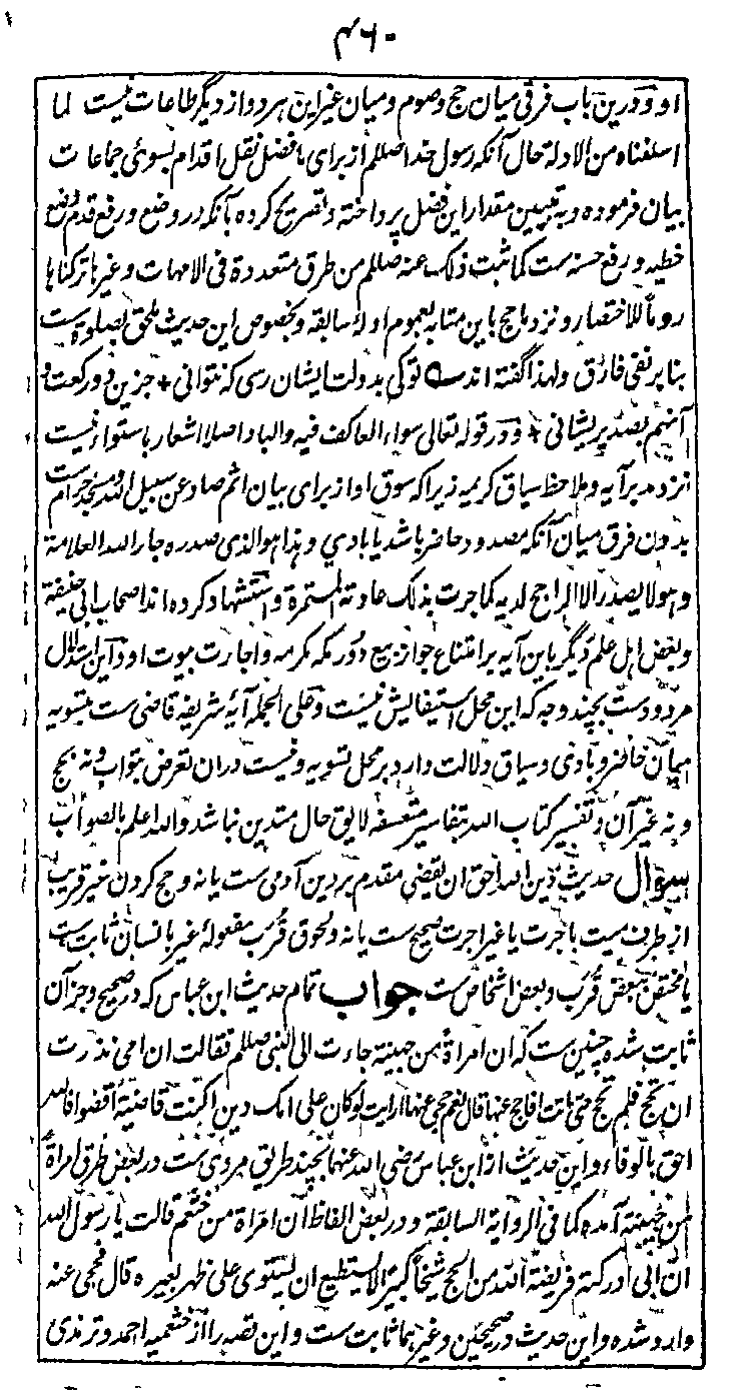 ۴۶۰
او و درین باب فرقی میان حج و صوم و میان غیر این هر دو از دیگر طاعات نیست لما
اسلفناه من الادلة حال آنکه رسول خدا صللم از برای ما فضل نقل اقدام بسوئ جماعات
بیان فرموده و به تبیین مقدار این فضل پرداخته و تصریح کرده بآنکه در وضع و رفع قدم وضع
خطیه و رفع حسنه ست کما ثبت ذلک عنه صللم من طرق متعددة فی الامهات و غیرها ترکناها
روماً للاختصار و نزد ما حج باین مثابه بعموم ادلهٔ سابقه و بخصوص این حدیث ملحق بصلوة ست
بنا بر نفی فارق و لهذا گفته اند ــه تو کی بدولت ایشان رسی که نتوانی + جز این دو رکعت و
آنهم بصد پریشانی + و در قوله تعالی سواء العاکف فیه والباد اصلا اشعار باستواء نیست
نزد مدبر آیه و ملاحظ سیاق کریمه زیرا که سوق او از برای بیان اثم صاد عن سبیل الله و مسجد حرام ست
بدون فرق میان آنکه مصدود حاضر باشد یا بادی و هذا هو الذی صدره جار الله العلامة
و هو لا یصدر الا الراجح لدیه کما جرت بذلک عادته المستمرة و استشهاد کرده اند اصحاب ابی حنیفة
و بعض اهل علم دیگر باین آیه بر امتناع جواز بیع دور مکه مکرمه و اجارت بیوت او و این استدلال
مردودست بچند وجه که این محل استیفایش نیست و علی الجمله آیهٔ شریفه قاضی ست بتسویه
میان حاضر و بادی و سیاق دلالت دارد بر محل تسویه و نیست دران تعرض بثواب و نه بحج
و نه غیر آن و تفسیر کتاب الله بتفاسیر متعسفه لایق حال متدین نباشد والله اعلم بالصواب
سوال حدیث دین الله احق ان یقضی مقدم بر دین آدمی ست یا نه و حج کردن غیر قریب
از طرف میت باجرت یا غیر اجرت صحیح ست یا نه و لحوق قُرَب مفعولهٔ غیر بانسان ثابت ست
یا مختص ببعض قُرَب و بعض اشخاص ست جواب تمام حدیث ابن عباس که در صحیح و جز آن
ثابت شده چنین ست که ان امراة من جهینة جاءت الی النبی صللم فقالت ان امی نذرت
ان تحج فلم تحج حتی ماتت افاحج عنها قال نعم حجی عنها ارایت لو کان علی امک دین اکنت قاضیة اقضوا فالله
احق بالوفاء و این حدیث از ابن عباس رضی الله عنهما بچند طریق مروی ست در بعض طرق امراة
من جهینة آمده کما فی الروایة السابقة و در بعض الفاظ ان امراة من خثعم قالت یا رسول الله
ان ابی ادرکته فریضة الله من الحج شیخا کبیرا لا یستطیع ان یستوی علی ظهر بعیره قال فحجی عنه
وارد شده و این حدیث در صحیحین و غیرهما ثابت ست و این قصه را از خثعمیه احمد و ترمذی